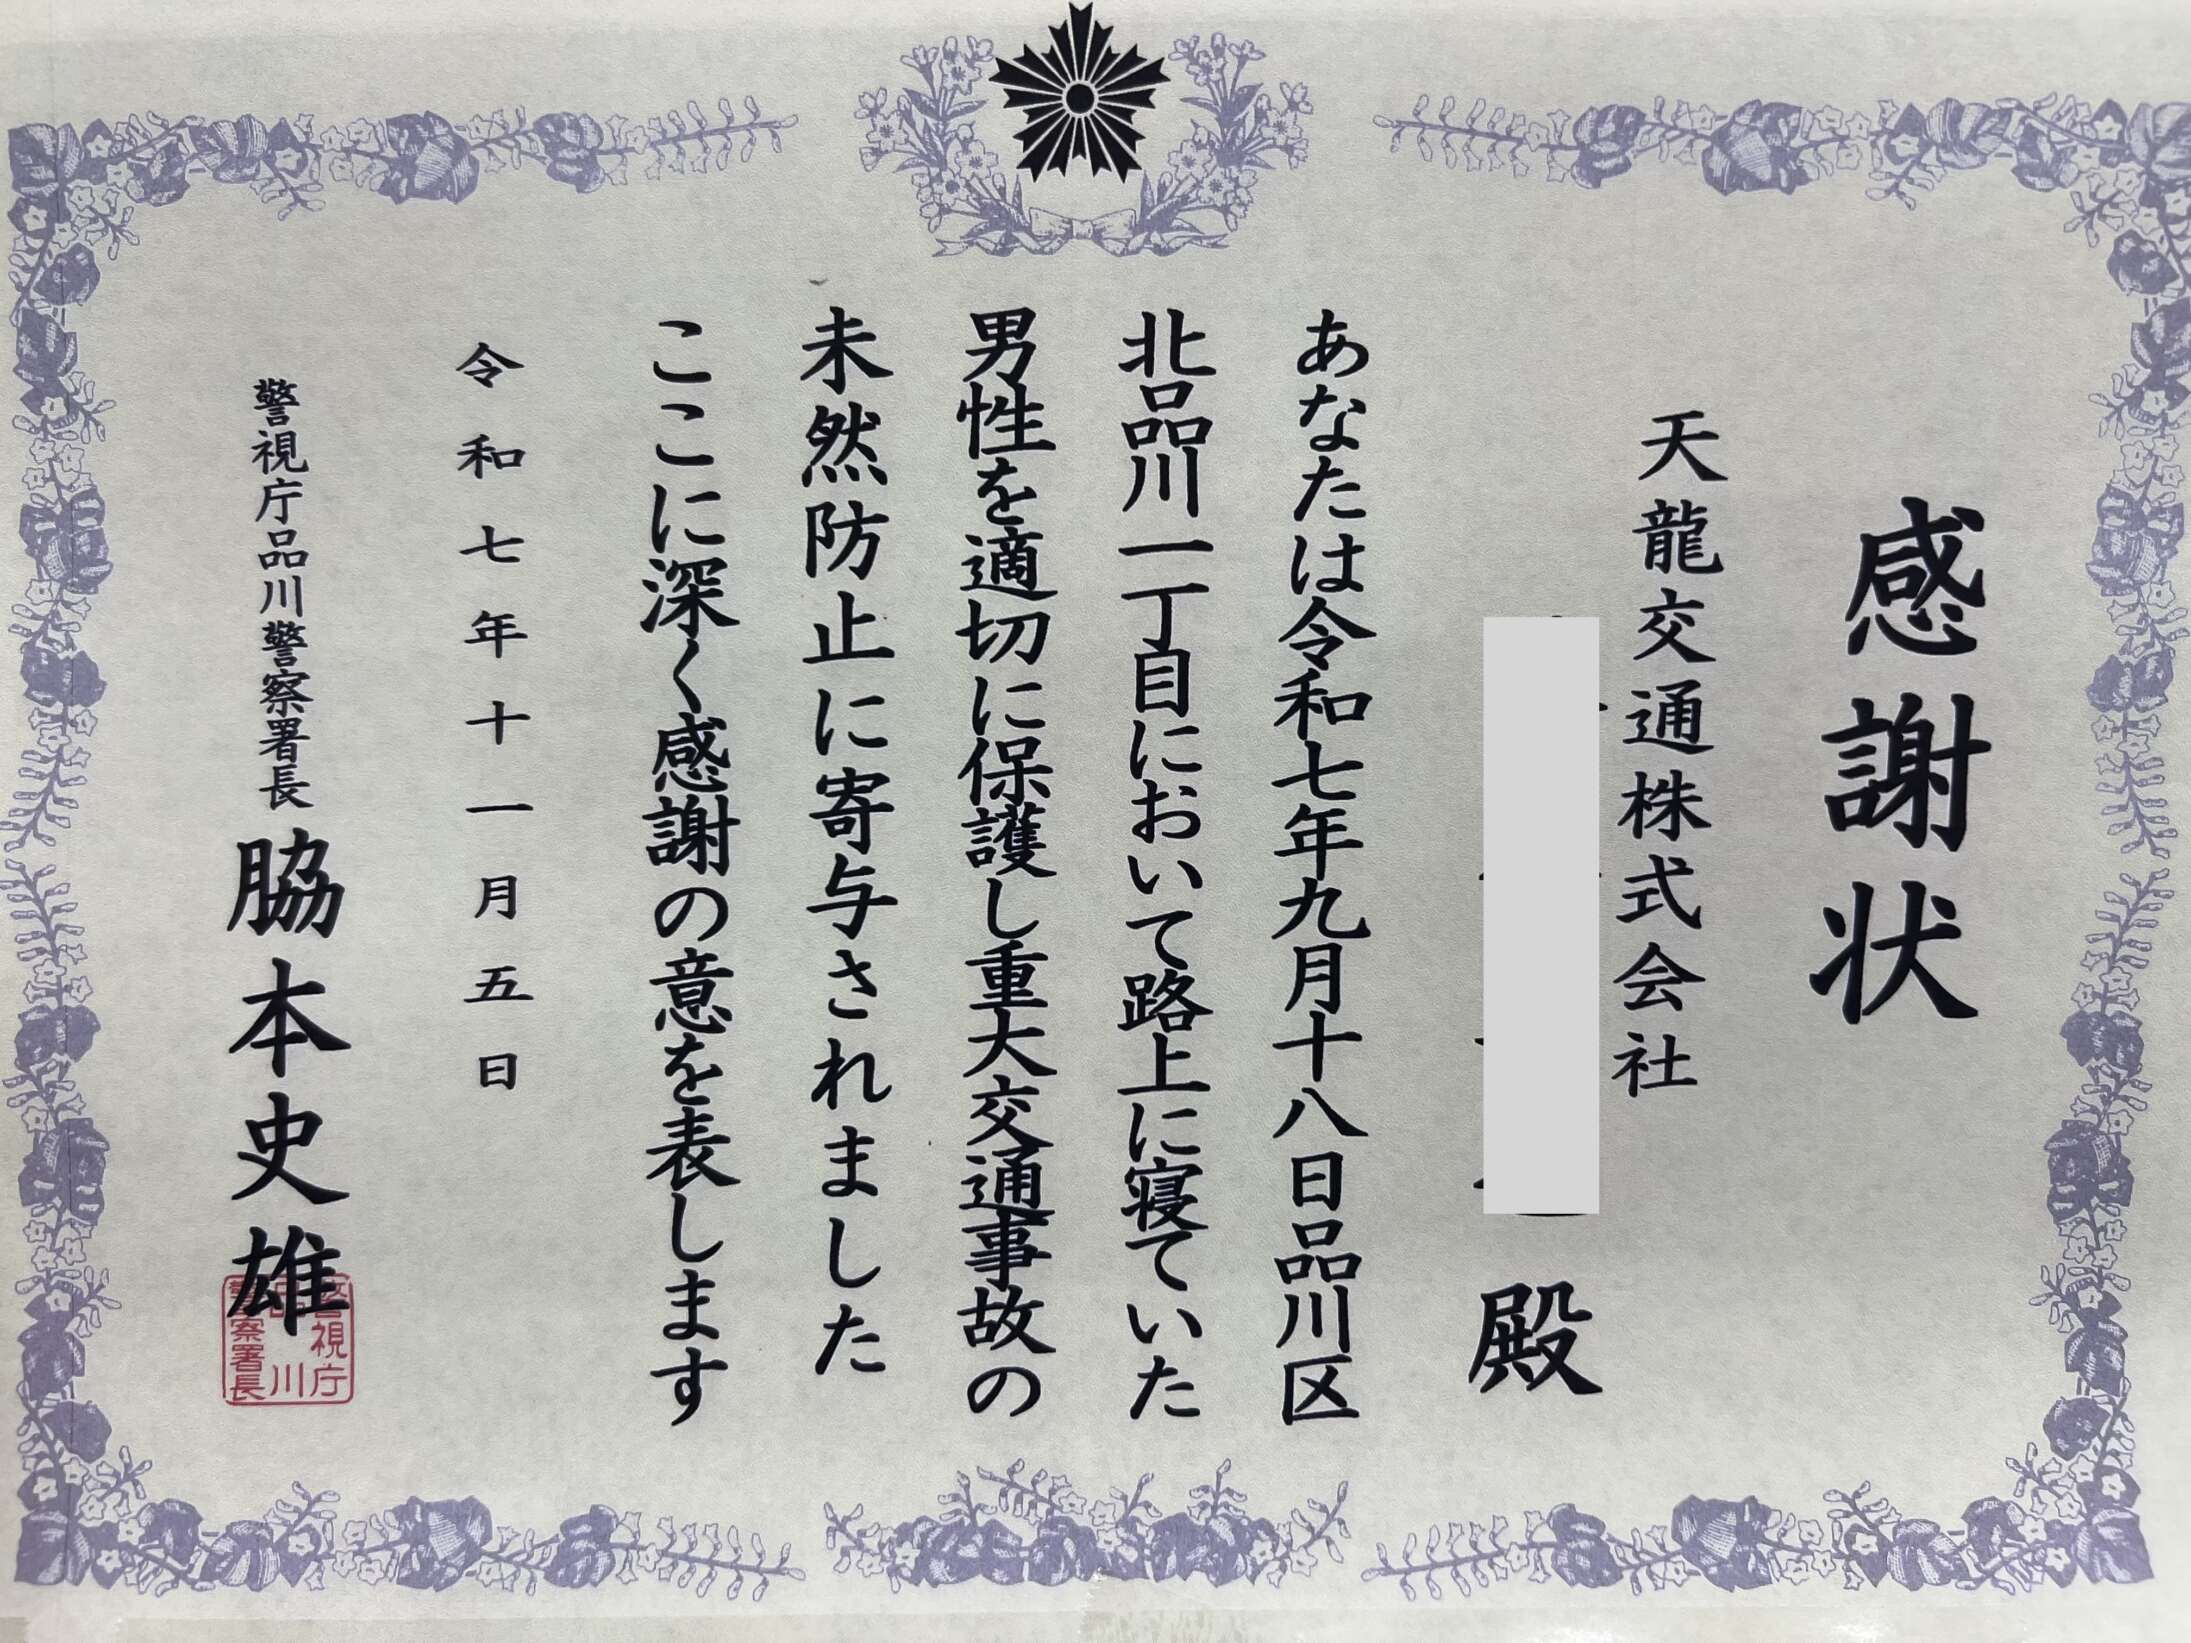 感謝状
天龍交通株式会社
殿
あなたは令和七年九月十八日品川区
北品川一丁目において路上に寝ていた
男性を適切に保護し重大交通事故の
未然防止に寄与されました
ここに深く感謝の意を表します
令和七年十一月五日
警視庁品川警察署長 脇本史雄
警視庁
品川
警察署長